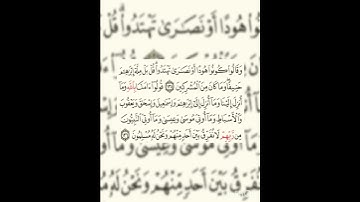 وَقَالُوا۟ كُونُوا۟ هُودًا أَوْ نَصَٰرَىٰ تَهْتَدُوا۟ ۗ قُلْ بَلْ مِلَّةَ إِبْرَٰهِـۧمَ
حَنِيفًا ۖ وَمَا كَانَ مِنَ ٱلْمُشْرِكِينَ ١٣٥ قُولُوٓا۟ ءَامَنَّا بِٱللَّهِ وَمَآ
أُنزِلَ إِلَيْنَا وَمَآ أُنزِلَ إِلَىٰٓ إِبْرَٰهِـۧمَ وَإِسْمَٰعِيلَ وَإِسْحَٰقَ وَيَعْقُوبَ
وَٱلْأَسْبَاطِ وَمَآ أُوتِىَ مُوسَىٰ وَعِيسَىٰ وَمَآ أُوتِىَ ٱلنَّبِيُّونَ
مِن رَّبِّهِمْ لَا نُفَرِّقُ بَيْنَ أَحَدٍ مِّنْهُمْ وَنَحْنُ لَهُۥ مُسْلِمُونَ ١٣٦